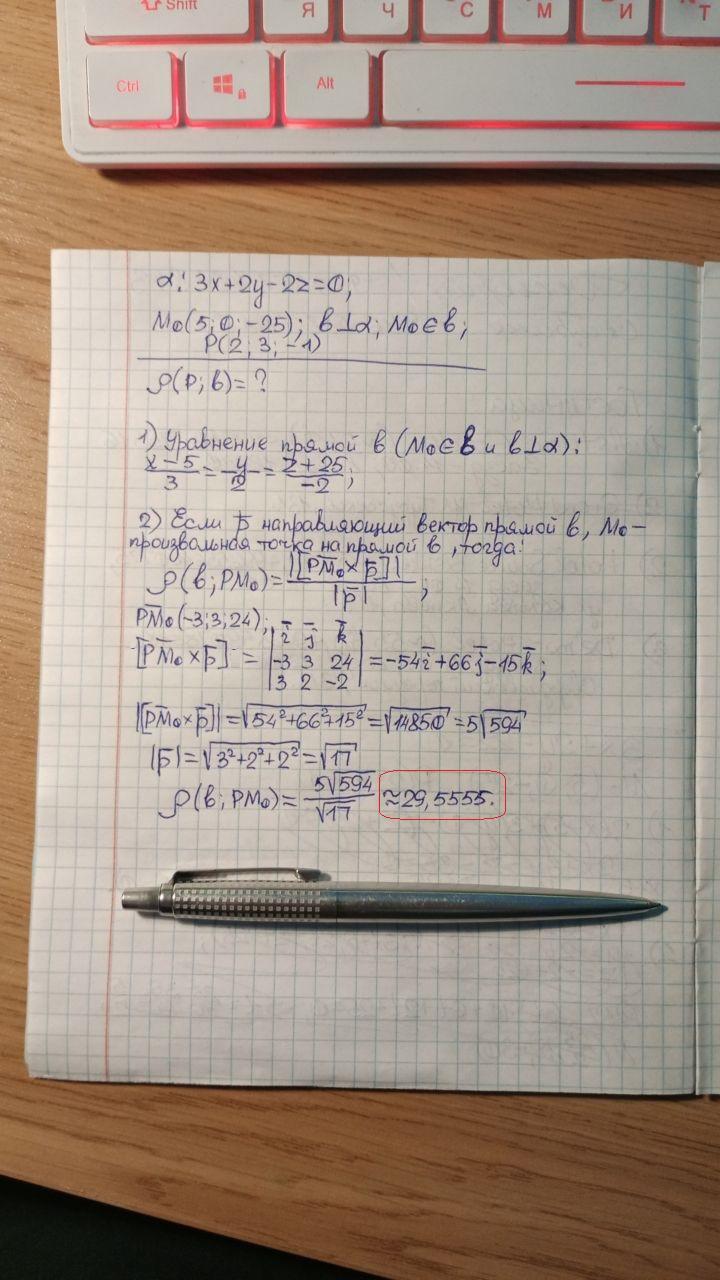 Shift Я Ч С М И Т
Ctrl Alt
α: 3x+2y-2z=0;
M₀(5; 0; -25); b⊥α; M₀∈b;
P(2; 3; -1)
ρ(P; b)=?
1) Уравнение прямой b (M₀∈b и b⊥α):
(x-5)/3 = y/2 = (z+25)/(-2);
2) Если p̅ направляющий вектор прямой b, M₀ –
произвольная точка на прямой b, тогда:
ρ(b; PM₀) = |[P̅M̅₀ × p̅]| / |p̅|;
P̅M̅₀(-3; 3; 24);
[P̅M̅₀ × p̅] = | i̅ j̅ k̅ |
| -3 3 24 | = -54i̅ + 66j̅ - 15k̅;
| 3 2 -2 |
|[P̅M̅₀ × p̅]| = √(54²+66²+15²) = √14850 = 5√594
|p̅| = √(3²+2²+2²) = √17
ρ(b; PM₀) = 5√594/√17 ≈ 29,5555.